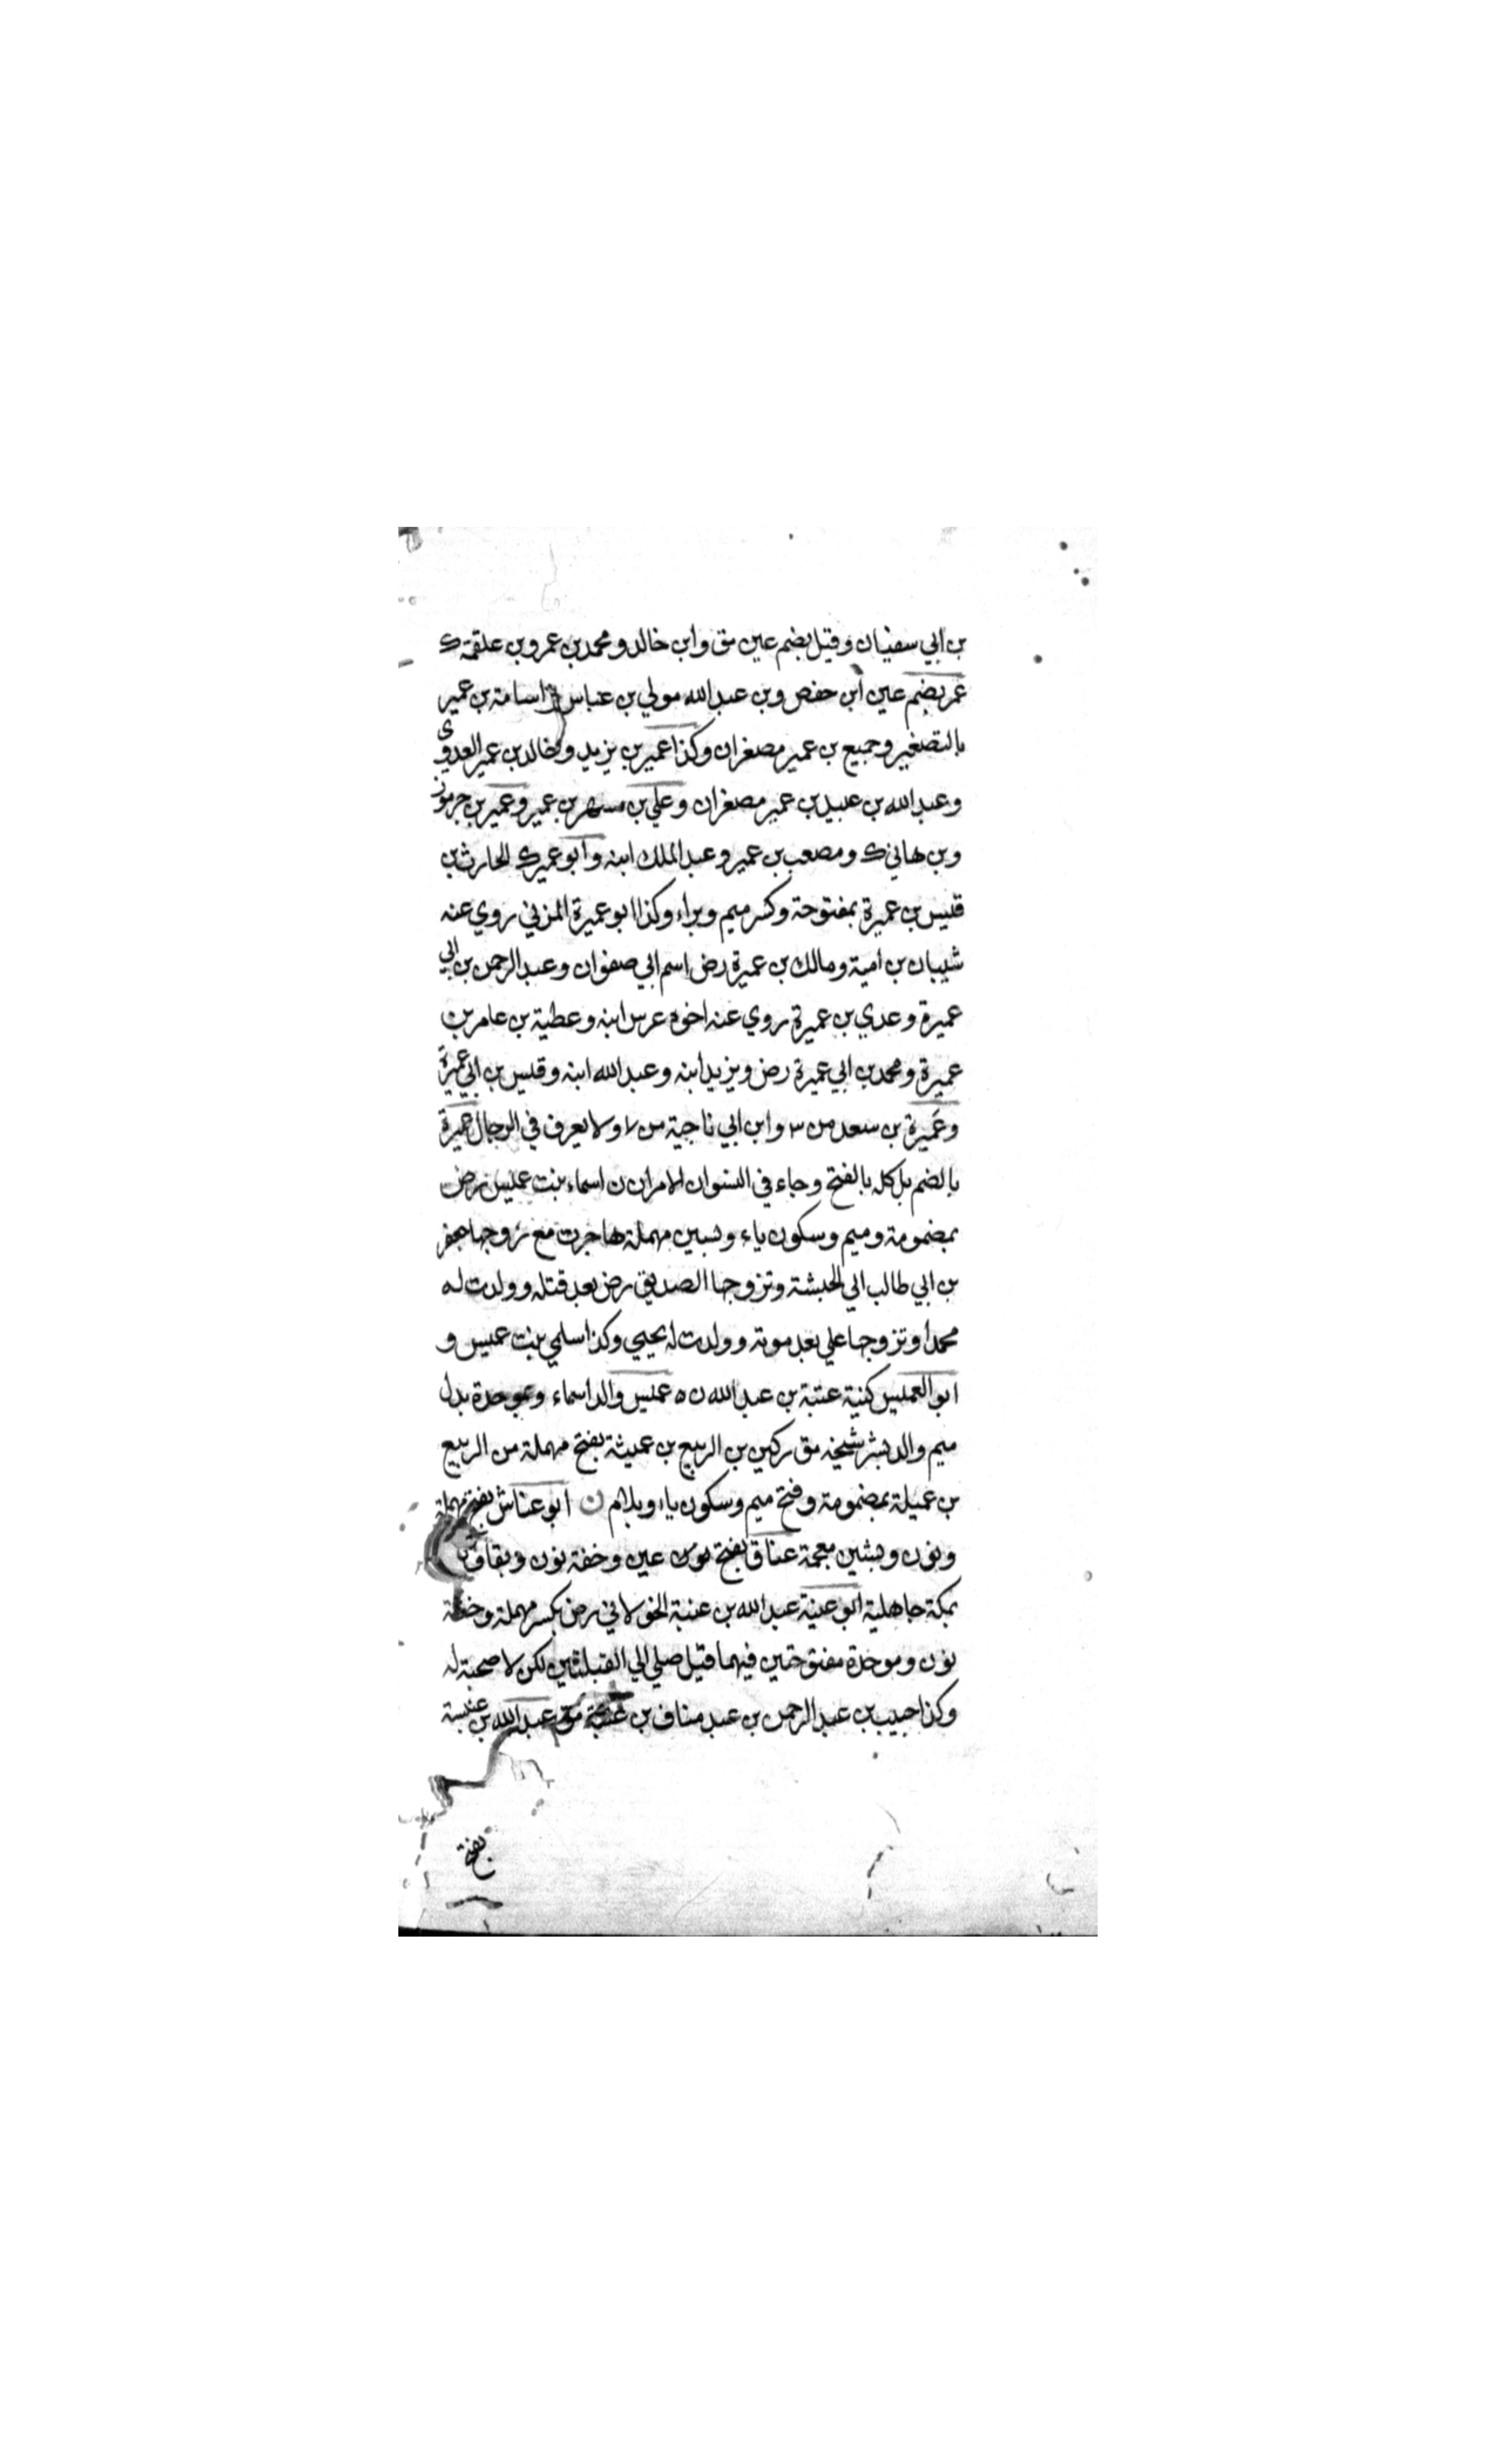 بن ابي سفيان وقيل بضم عين مق وابن خالد ومحمد بن عمرو بن علقمة ك
عمر بضم عين ابن حفص وبن عبد الله مولي بن عباس اسامة بن عمير
بالتصغير وجميع بن عمير مصغران وكذا عمير بن يزيد وخالد بن عمير العدوي
وعبد الله بن عبيد بن عمير مصغران وعلي بن مسهر بن عمير وعمير بن جرموز
وبن هاني ك ومصعب بن عمير وعبد الملك ابنه وابو عمير ك الحارث بن
قيس بن عميرة بمفتوحة وكسر ميم وبراء وكذا ابو عميرة المزني روي عنه
شيبان بن امية ومالك بن عميرة رض اسم ابي صفوان وعبد الرحمن بن ابي
عميرة وعدي بن عميرة روي عنه اخوه عرس ابنه وعطية بن عامر بن
عميرة ومحمد بن ابي عميرة رض ويزيد ابنه وعبد الله ابنه وقيس بن ابي عميرة
وعَميرة بن سعد من ٣ وابن ابي ناجية من ٧ ولا يعرف في الرجال عميرة
بالضم بل كله بالفتح وجاء في النسوان الامران ن اسماء بنت عميس رض
بمضمومة وميم وسكون ياء وبسين مهملة هاجرت مع زوجها جعفر
بن ابي طالب الي الحبشة وتزوجها الصديق رض بعد قتله وولدت له
محمدا وتزوجها علي بعد موته وولدت له يحيي وكذا سلمي بنت عميس و
ابو العميس كنية عتبة بن عبد الله ن ه عميس والد اسماء وبموحدة بدل
ميم والد بشر شيخه مق ركين بن الربيع بن عميثة بفتح مهملة من الربيع
بن عميلة بمضمومة وفتح ميم وسكون ياء وبلام ن ابو عناش بفتح مهملة
ونون وبشين معجمة عناق بفتح عين وخفة نون وبقاف
بمكة جاهلية ابو عنبة عبد الله بن عنبة الخولاني رض بكسر مهملة وخفة
نون وموحدة مفتوحتين فيهما قيل صلي الي القبلتين لكن لا صحبة له
وكذا حبيب بن عبد الرحمن بن عبد مناف بن عنبة مق عبد الله بن عنبسة
بفتح